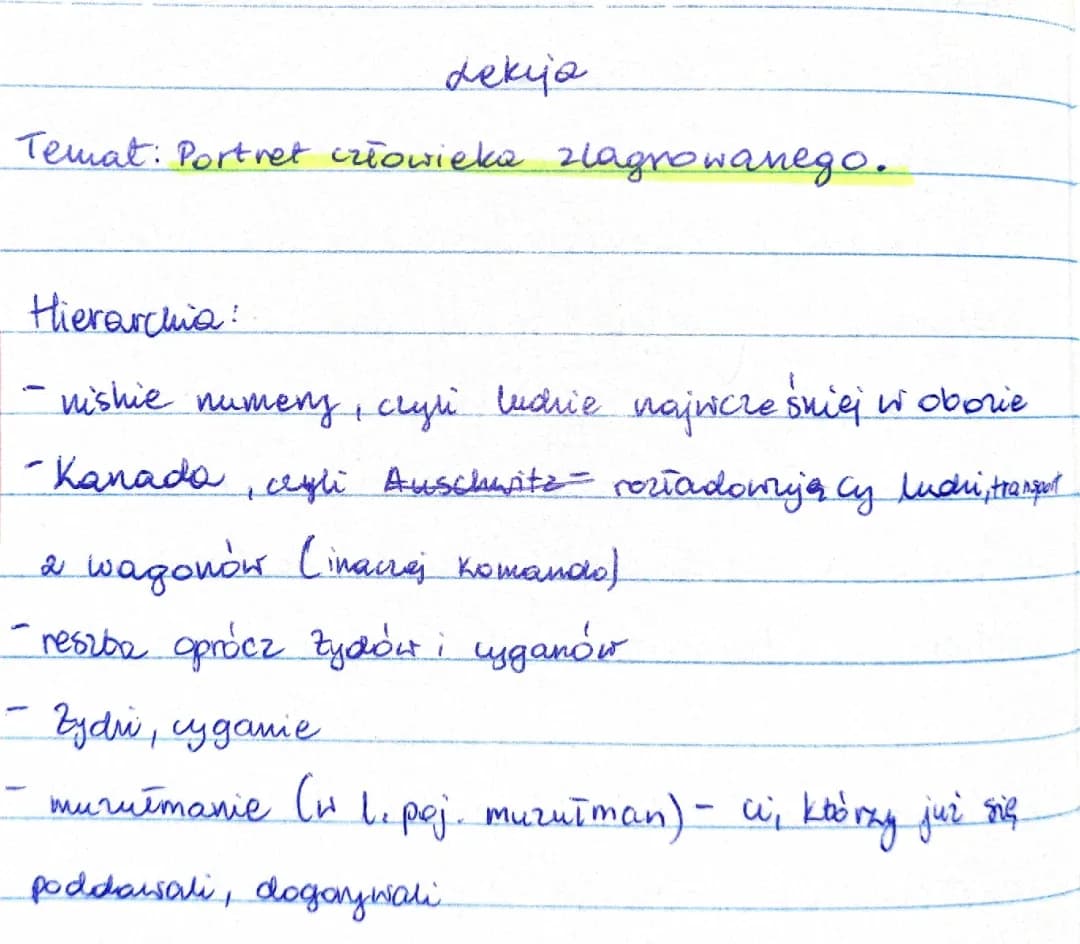 Lekcja
Temat: Portret człowieka zlagrowanego.
Hierarchia:
- niskie numery, czyli ludzie najwcześniej w obozie
- Kanada, czyli Auschwitz= rozładowujący ludzi, transport
z wagonów (inaczej Komando)
- reszta oprócz Żydów i cyganów
- Żydzi, cyganie
- muzułmanie (w l. poj. muzułman) - ci, którzy już się
poddawali, dogorywali